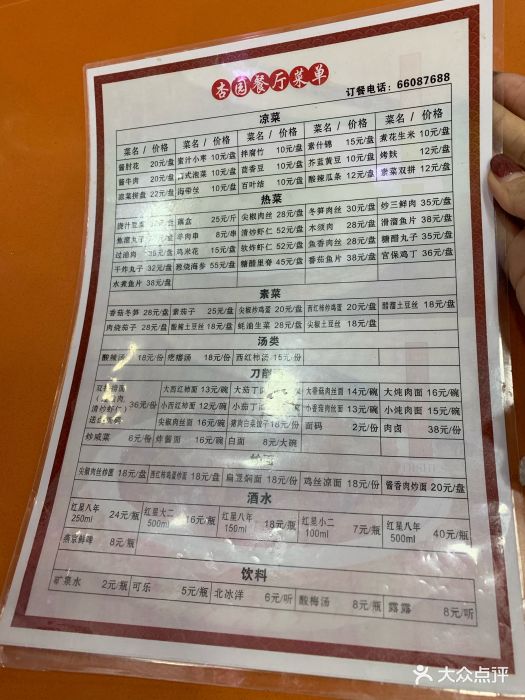 杏园餐厅菜单
订餐电话：66087688
凉菜
菜名 / 价格 菜名 / 价格 菜名 / 价格 菜名 / 价格 菜名 / 价格
酱肘花 20元/盘 蜜汁小枣 10元/盘 拌腐竹 10元/盘 素什锦 15元/盘 煮花生米 10元/盘
酱牛肉 20元/盘 式泡菜 10元/盘 茴香豆 10元/盘 芥蓝黄豆 10元/盘 烤麸 12元/盘
凉菜拼盘 22元/盘 海带丝 10元/盘 百叶结 10元/盘 酸辣瓜条 12元/盘 素菜双拼 12元/盘
热菜
菜名 / 价格 菜名 / 价格 菜名 / 价格 菜名 / 价格 菜名 / 价格
浇汁豆腐 元/盘 盒 25元/斤 尖椒肉丝 28元/盘 冬笋肉丝 30元/盘 炒三鲜肉 35元/盘
焦溜丸子 元/盘 羊肉串 8元/串 清炒虾仁 52元/盘 木须肉 28元/盘 滑溜鱼片 38元/盘
过油肉 36元/盘 鸡米花 15元/盘 软炸虾仁 52元/盘 鱼香肉丝 28元/盘 糖醋丸子 35元/盘
干炸丸子 32元/盘 葱烧海参 55元/盘 糖醋里脊 45元/盘 番茄鱼片 38元/盘 宫保鸡丁 36元/盘
水煮鱼片 38元/盘
素菜
香菇冬笋 28元/盘 素茄子 25元/盘 尖椒炒鸡蛋 20元/盘 西红柿炒鸡蛋 20元/盘 醋溜土豆丝 18元/盘
肉烧茄子 28元/盘 酸辣土豆丝 18元/盘 蚝油生菜 28元/盘 尖椒土豆丝 18元/盘
汤类
酸辣汤 18元/份 疙瘩汤 18元/份 西红柿汤 15元/份
刀削
大西红柿面 13元/碗 大茄丁 14元/碗 大香菇肉丝面 14元/碗 大炖肉面 16元/碗
清炒虾仁 36元/份 小西红柿面 12元/碗 小茄丁 13元/碗 小香菇肉丝面 13元/碗 小炖肉面 15元/碗
尖椒肉丝面 16元/碗 猪肉白菜饺子 18元/份 面码 2元/份 肉卤 38元/份
炒咸菜 6元/份 炸酱面 16元/碗 白面 8元/大碗
尖椒肉丝炒面 18元/盘 西红柿鸡蛋炒面 18元/盘 扁豆焖面 18元/盘 鸡丝凉面 18元/份 酱香肉炒面 20元/盘
酒水
红星八年 250ml 24元/瓶 红星大二 500ml 16元/瓶 红星八年 150ml 18元/瓶 红星小二 100ml 7元/瓶 红星八年 500ml 40元/瓶
燕京鲜啤 8元/瓶
饮料
矿泉水 2元/瓶 可乐 5元/瓶 北冰洋 6元/听 酸梅汤 8元/瓶 露露 8元/听
大众点评